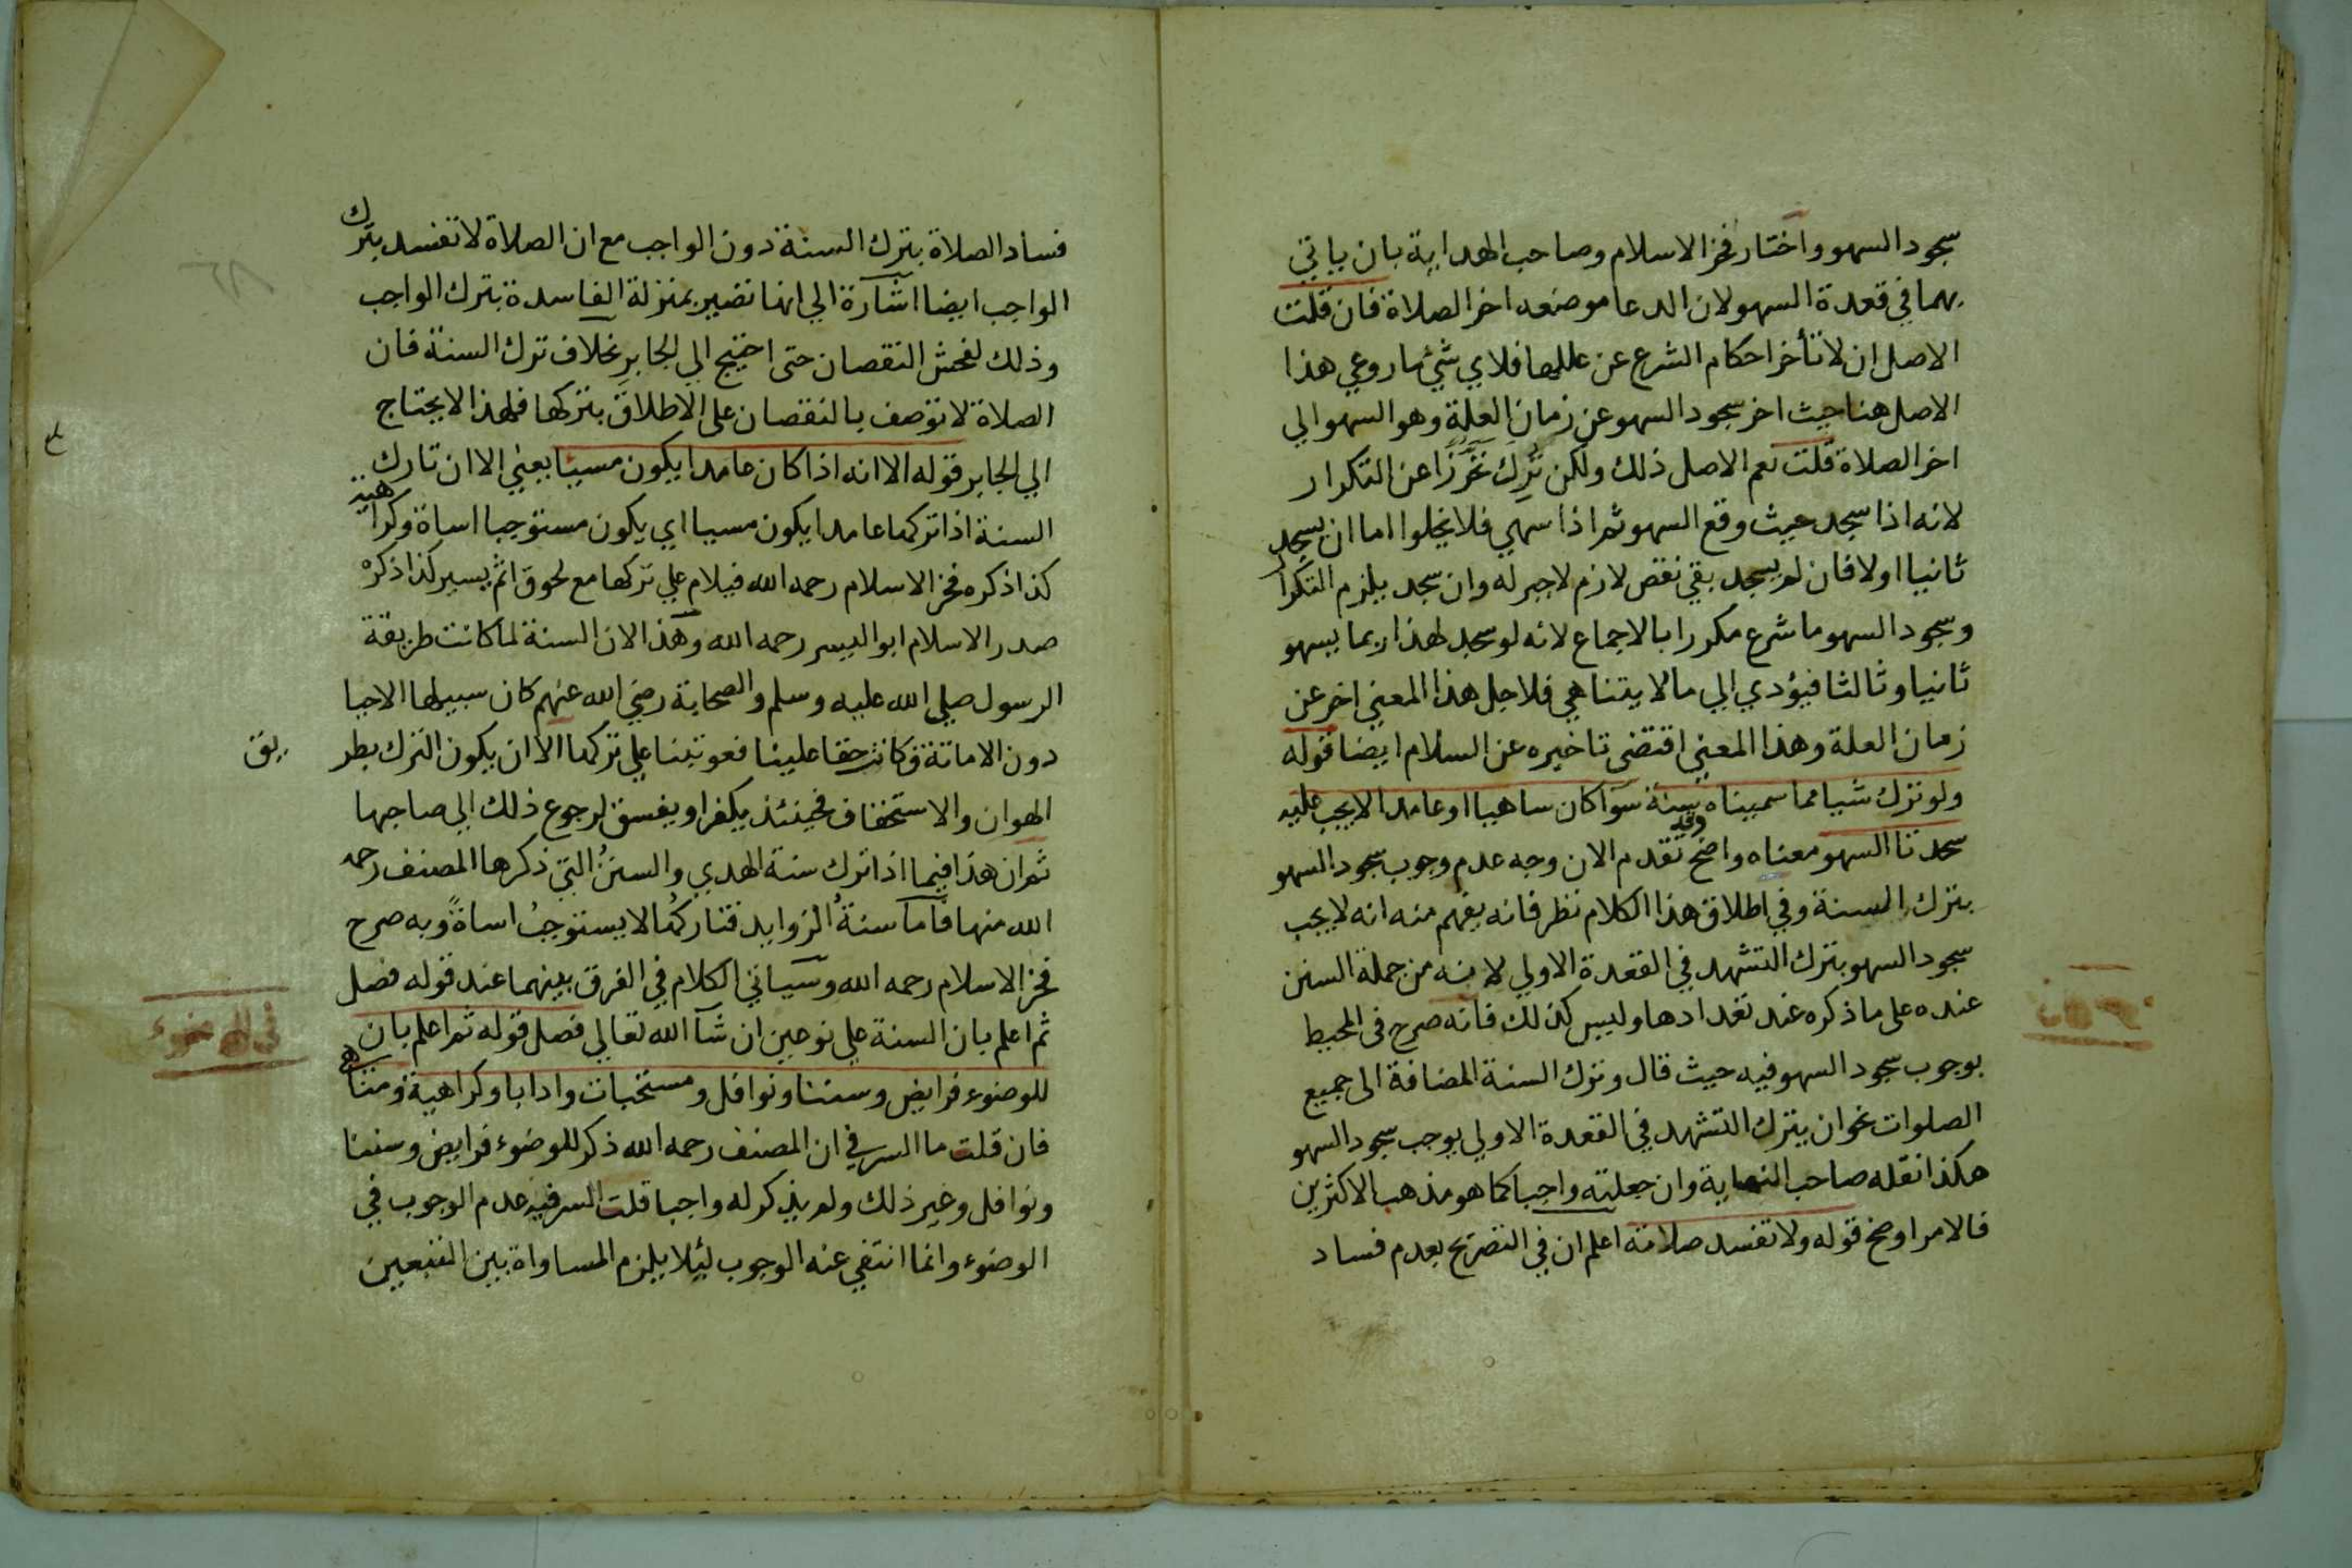 سجود السهو واختار فخر الاسلام وصاحب الهداية بان ياتي
بهما في قعدة السهو لان الدعا موضعه اخر الصلاة فان قلت
الاصل ان لا تأخر احكام الشرع عن عللها فلاي شيء ما روعي هذا
الاصل هنا حيث اخر سجود السهو عن زمان العلة وهو السهو الي
اخر الصلاة قلت نعم الاصل ذلك ولكن تُرِكَ تحرّزًا عن التكرار
لانه اذا سجد حيث وقع السهو ثم اذا سهي فلا يخلوا اما ان يسجد
ثانيا اولا فان لم يسجد بقي نقص لازم لا جبر له وان سجد يلزم التكرار
وسجود السهو ما شرع مكررا بالاجماع لانه لو سجد لهذا ربما يسهو
ثانيا وثالثا فيؤدي الي ما لا يتناهي فلاجل هذا المعني اخر عن
زمان العلة وهذا المعني اقتضي تاخيره عن السلام ايضا قوله
ولو ترك شيا مما سميناه سنة سوآ كان ساهيا او عامدا لا يجب عليه
سجدتا السهو معناه واضح وقد تقدم الان وجه عدم وجوب سجود السهو
بترك السنة وفي اطلاق هذا الكلام نظر فانه يفهم منه انه لا يجب
سجود السهو بترك التشهد في القعدة الاولي لانه من جملة السنن
عنده على ما ذكره عند تعدادها وليس كذلك فانه صرح فى المحيط
بوجوب سجود السهو فيه حيث قال وترك السنة المضافة الى جميع
الصلوات نحو ان يترك التشهد في القعدة الاولي يوجب سجود السهو
هكذا نقله صاحب النهاية وان جعلته واجبا كما هو مذهب الاكثرين
فالامر اوضح قوله ولا تفسد صلاته اعلم ان في التصريح بعدم فساد
فساد الصلاة بترك السنة دون الواجب مع ان الصلاة لا تفسد بترك
الواجب ايضا اشارة الي انها تصير بمنزلة الفاسدة بترك الواجب
وذلك لفحش النقصان حتى احتيج الي الجابر بخلاف ترك السنة فان
الصلاة لا توصف بالنقصان على الاطلاق بتركها فلهذا لا يحتاج
الي الجابر قوله الا انه اذا كان عامدا يكون مسيئا يعني الا ان تارك
السنة اذا تركها عامدا يكون مسيا اي يكون مستوجبا اساة وكراهية
كذا ذكره فخر الاسلام رحمه الله فيلام علي تركها مع لحوق اثم يسير كذا ذكره
صدر الاسلام ابو اليسر رحمه الله وهذا لان السنة لما كانت طريقة
الرسول صلي الله عليه وسلم والصحابة رضي الله عنهم كان سبيلها الاحيا
دون الاماتة فكانت حقا علينا فعوتبنا علي تركها الا ان يكون الترك بطر يق
الهوان والاستخفاف فحينئذ يكفر او يفسق لرجوع ذلك الي صاحبها
ثم ان هذا فيما اذا ترك سنة الهدي والسننُ التي ذكرها المصنف رحمه
الله منها فاما سنةُ الزوايد فتاركُها لا يستوجبُ اساةً وبه صرح
فخر الاسلام رحمه الله وسياتي الكلام في الفرق بينهما عند قوله فصل
ثم اعلم بان السنة علي نوعين ان شآ الله تعالي فصل قوله ثم اعلم بان
في الوضوء
للوضوء فرايض وسننا ونوافل ومستحبات وادابا وكراهية ومناهي
فان قلت ما السر في ان المصنف رحمه الله ذكر للوضوء فرايض وسننا
ونوافل وغير ذلك ولم يذكر له واجبا قلت السر فيه عدم الوجوب في
الوضوء وانما انتفي عنه الوجوب ليلا يلزم المساواة بين التبعين